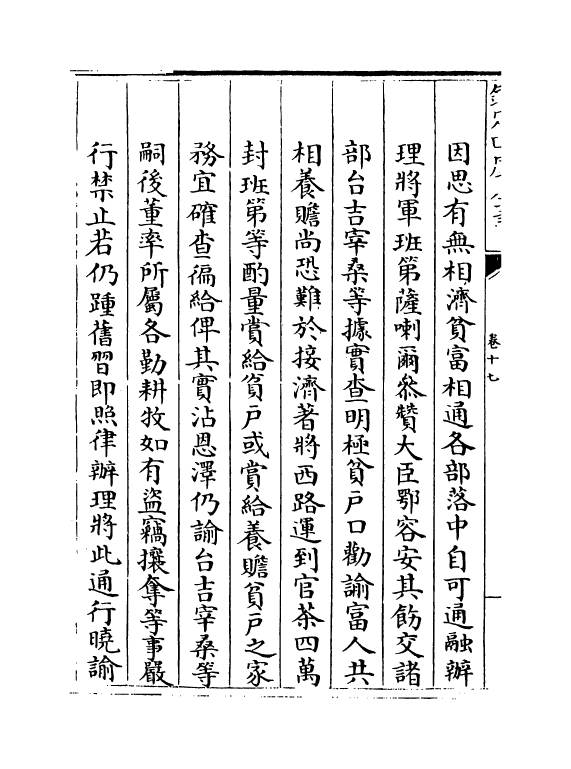 因思有無相濟貧富相通各部落中自可通融辦
理將軍班第薩喇爾參贊大臣鄂容安其飭交諸
部台吉宰桑等據實查明極貧戶口勸諭富人共
相養贍尚恐難於接濟著將西路運到官茶四萬
封班第等酌量賞給貧戶或賞給養贍貧戶之家
務宜確查徧給俾其實沾恩澤仍諭台吉宰桑等
嗣後董率所屬各勤耕牧如有盜竊攘奪等事嚴
行禁止若仍踵舊習即照律辦理將此通行曉諭
卷十七